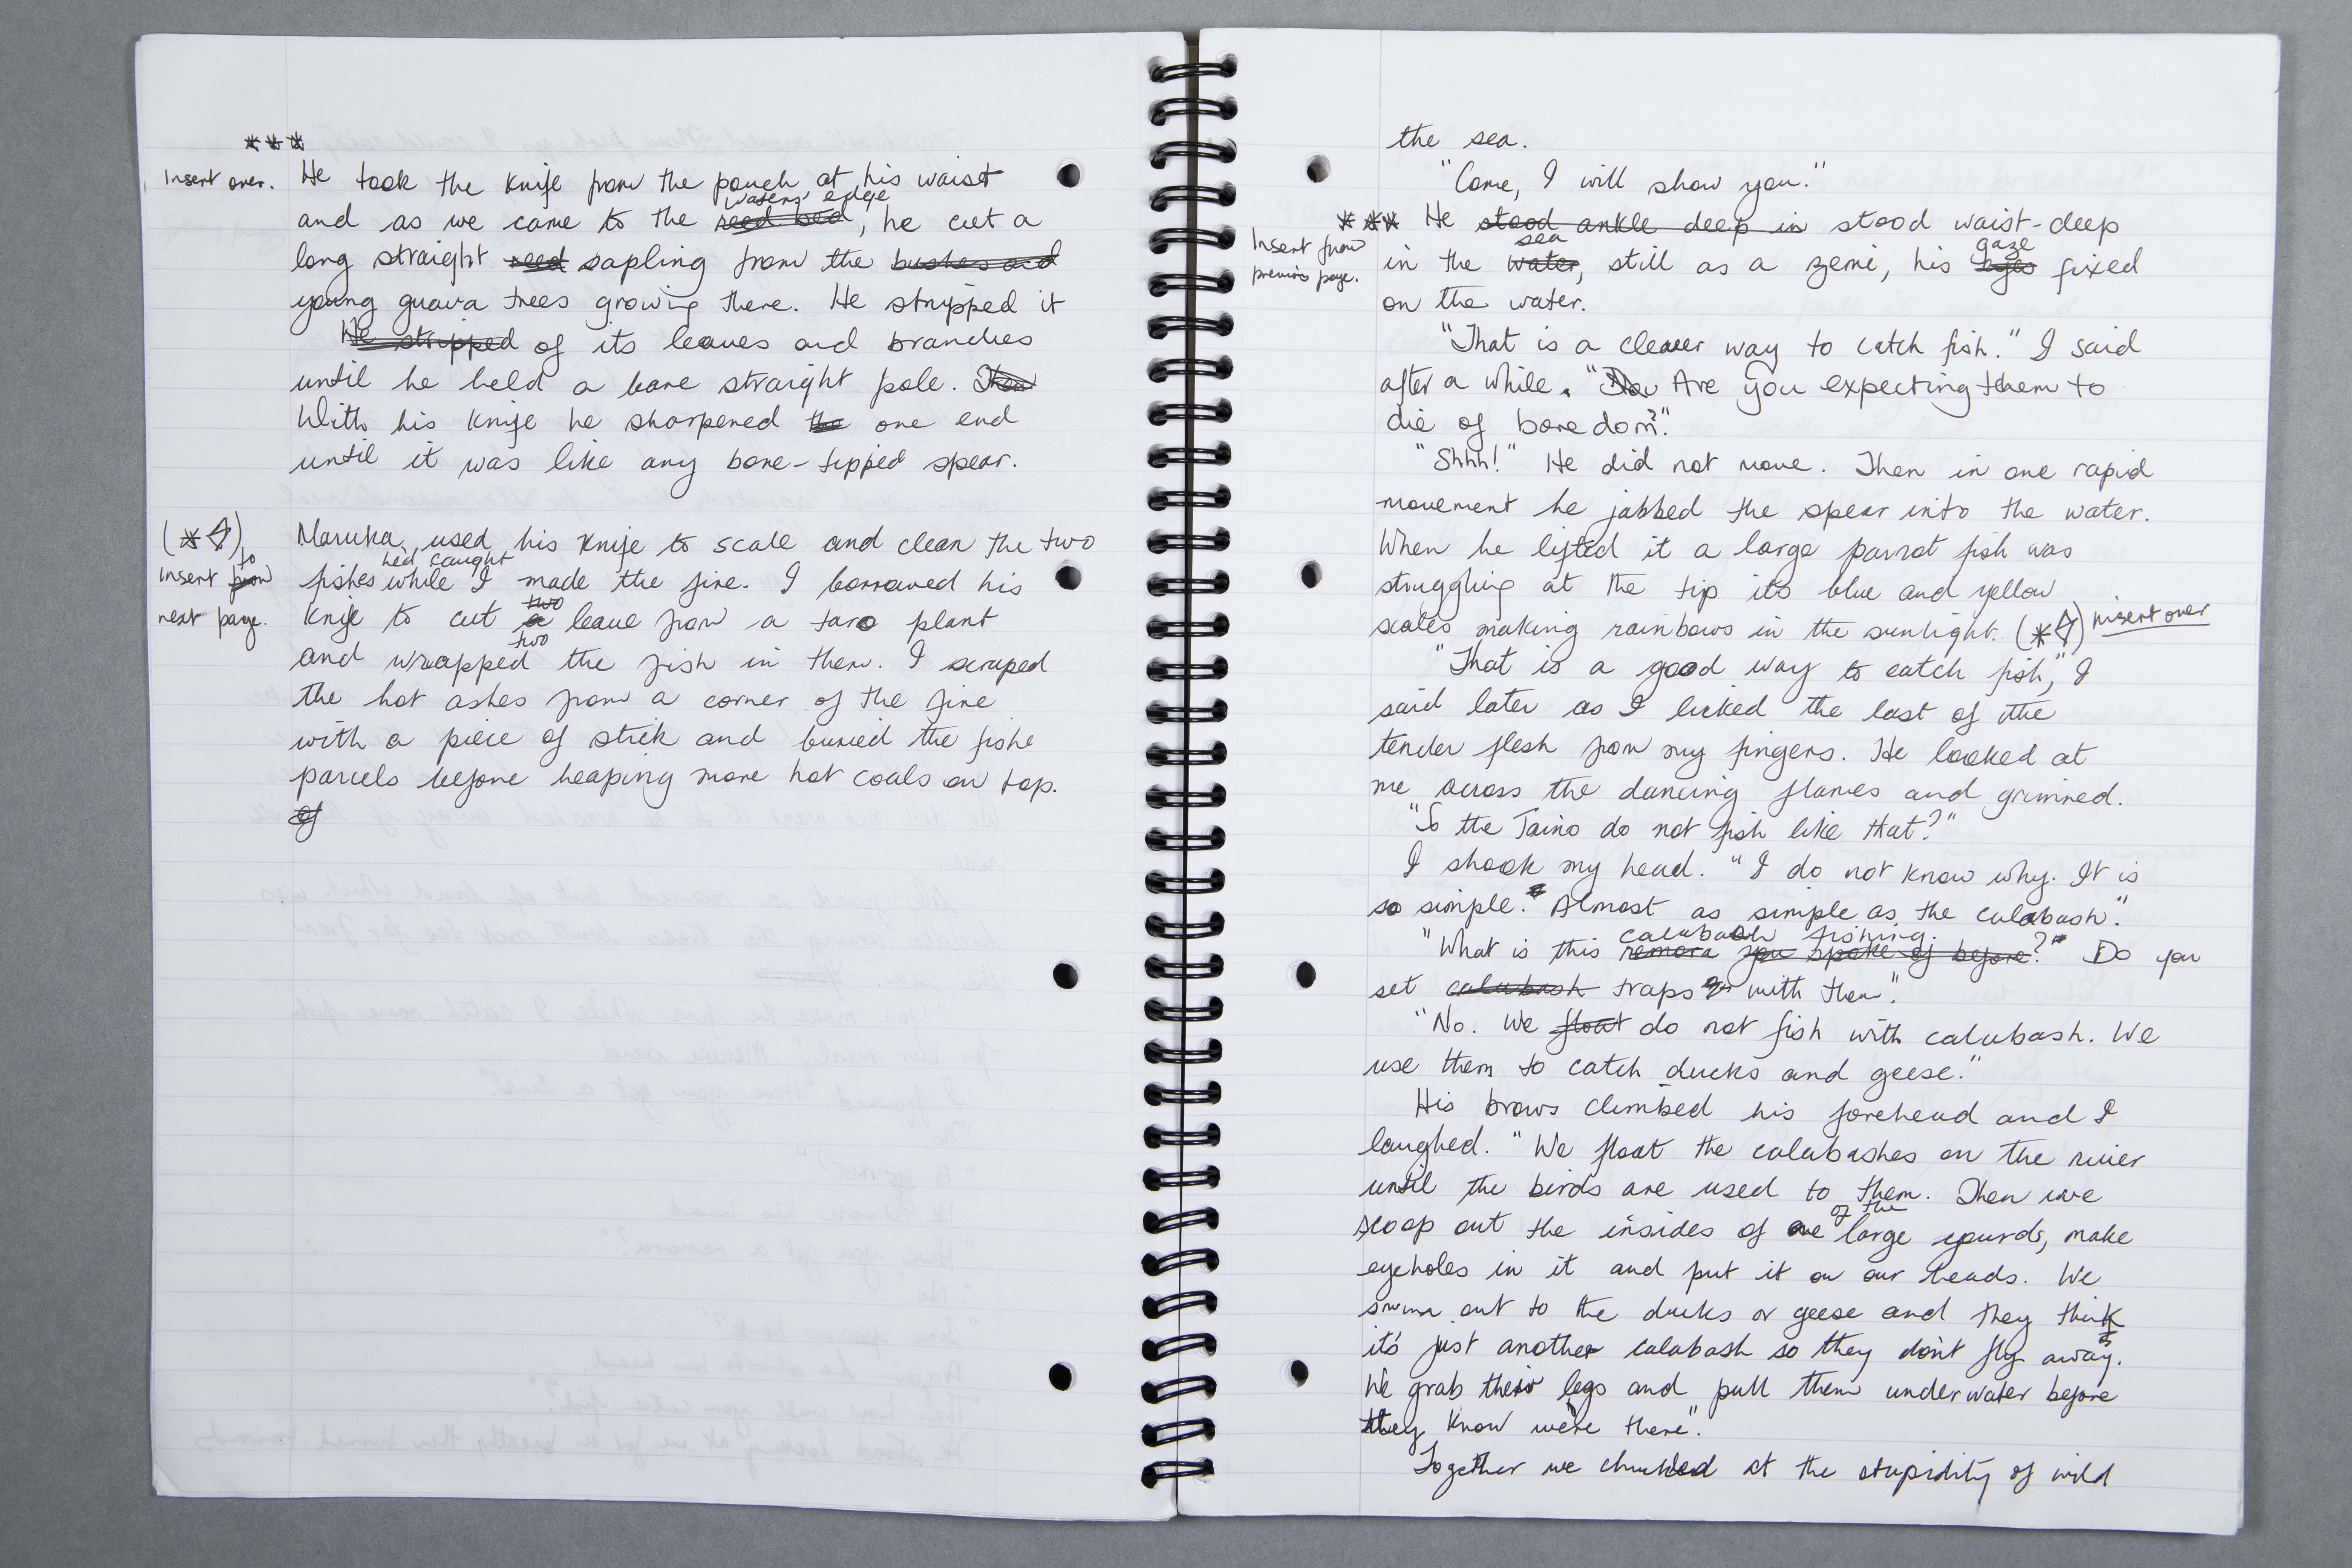 ***
Insert over. He took the knife from the pouch at his waist
waters' edge
and as we came to the reed bed, he cut a
long straight reed sapling from the bushes and
young guava trees growing there. He stripped it
He stripped of its leaves and branches
until he held a bare straight pole. Then
With his knife he sharpened the one end
until it was like any bone-tipped spear.
(*◊) Maruka used his knife to scale and clean the two
to he'd caught
insert from fishes while I made the fire. I borrowed his
two
next page. knife to cut a leave from a taro plant
two
and wrapped the fish in them. I scraped
the hot ashes from a corner of the fire
with a piece of stick and buried the fishe
parcels before heaping more hot coals on top.
of
the sea.
"Come, I will show you."
*** He stood ankle deep in stood waist-deep
Insert from sea gaze
previous page. in the water, still as a zemi, his eyes fixed
on the water.
"That is a clever way to catch fish." I said
after a while. "Are you expecting them to
die of boredom?"
"Shhh!" He did not move. Then in one rapid
movement he jabbed the spear into the water.
When he lifted it a large parrot fish was
struggling at the tip its blue and yellow
scales making rainbows in the sunlight. (*◊) insert over
"That is a good way to catch fish," I
said later as I licked the last of the
tender flesh from my fingers. He looked at
me across the dancing flames and grinned.
"So the Taino do not fish like that?"
I shook my head. "I do not know why. It is
so simple. Almost as simple as the calabash."
calabash fishing.
"What is this remora you spoke of before?" Do you
set calabash traps with them."
"No. We float do not fish with calabash. We
use them to catch ducks and geese."
His brows climbed his forehead and I
laughed. "We float the calabashes on the river
until the birds are used to them. Then we
of the
scoop out the insides of one large gourds, make
eyeholes in it and put it on our heads. We
swim out to the ducks or geese and they think
it's just another calabash so they don't fly away.
We grab their legs and pull them underwater before
they know we're there".
Together we chuckled at the stupidity of wild